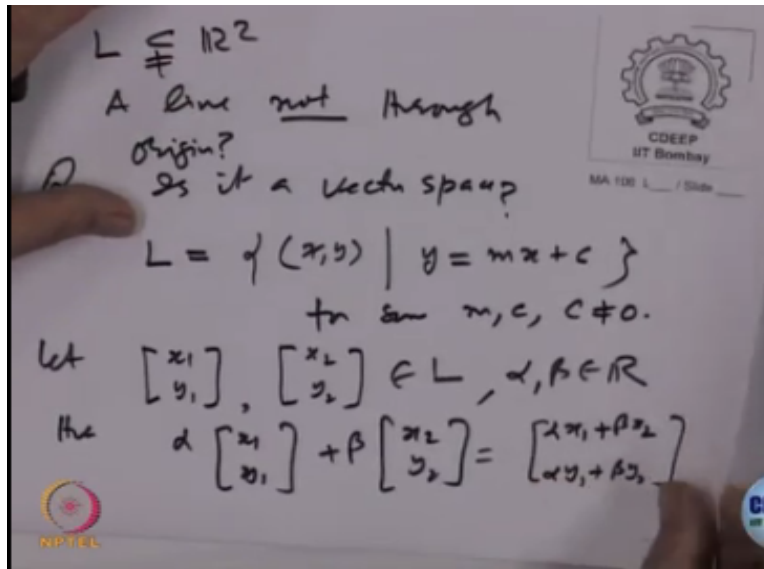 L ⊊ ℝ²
A line not through
origin?
Q Is it a vector space?
L = { (x, y) | y = mx + c }
for some m, c, c ≠ 0.
Let [x₁ y₁], [x₂ y₂] ∈ L, α, β ∈ ℝ
α [x₁ y₁] + β [x₂ y₂] = [αx₁ + βx₂ αy₁ + βy₂]
CDEEP
IIT Bombay
MA 106 L___ / Slide ___
NPTEL